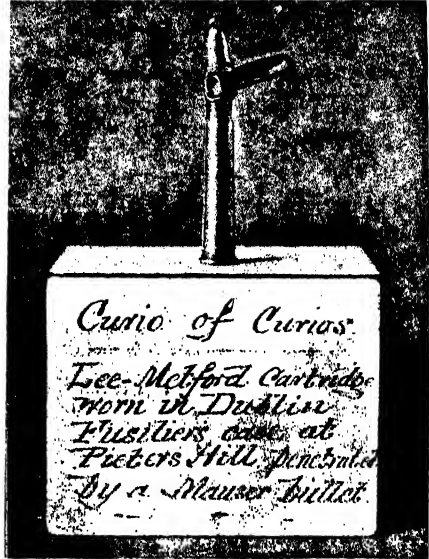 Curio of Curios.
Lee-Metford Cartridge
worn in Dublin
Fusiliers case at
Pieters Hill penetrated
by a Mauser bullet.